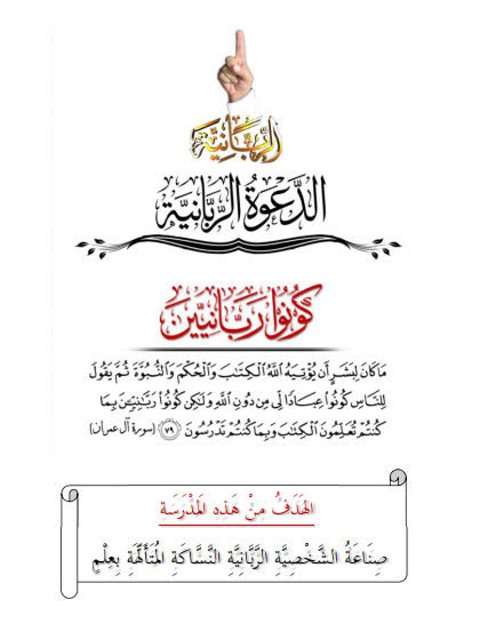 الرَّبَّانِيَّة
الدَّعْوَةُ الرَّبَّانِيَّة
كُونُوا رَبَّانِيِّين
مَا كَانَ لِبَشَرٍ أَن يُؤْتِيَهُ اللَّهُ الْكِتَٰبَ وَالْحُكْمَ وَالنُّبُوَّةَ ثُمَّ يَقُولَ
لِلنَّاسِ كُونُوا۟ عِبَادًا لِّى مِن دُونِ اللَّهِ وَلَٰكِن كُونُوا۟ رَبَّٰنِيِّۦنَ بِمَا
كُنتُمْ تُعَلِّمُونَ الْكِتَٰبَ وَبِمَا كُنتُمْ تَدْرُسُونَ ﴿٧٩﴾ (سورة آل عمران)
الهَدَفُ مِنْ هَذِهِ المَدْرَسَة
صِنَاعَةُ الشَّخْصِيَّةِ الرَّبَّانِيَّةِ النَّسَّاكَةِ المُتَأَلِّهَةِ بِعِلْمٍ